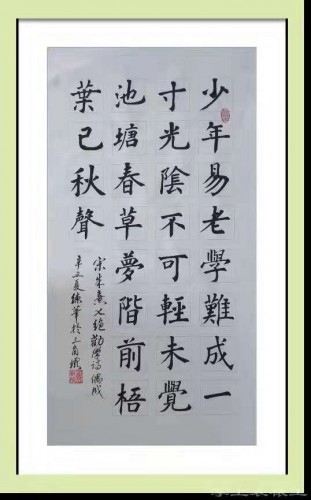 少年易老學難成一
寸光陰不可輕未覺
池塘春草夢階前梧
葉已秋聲
宋朱熹七絕勸學詩偶成
辛丑夏